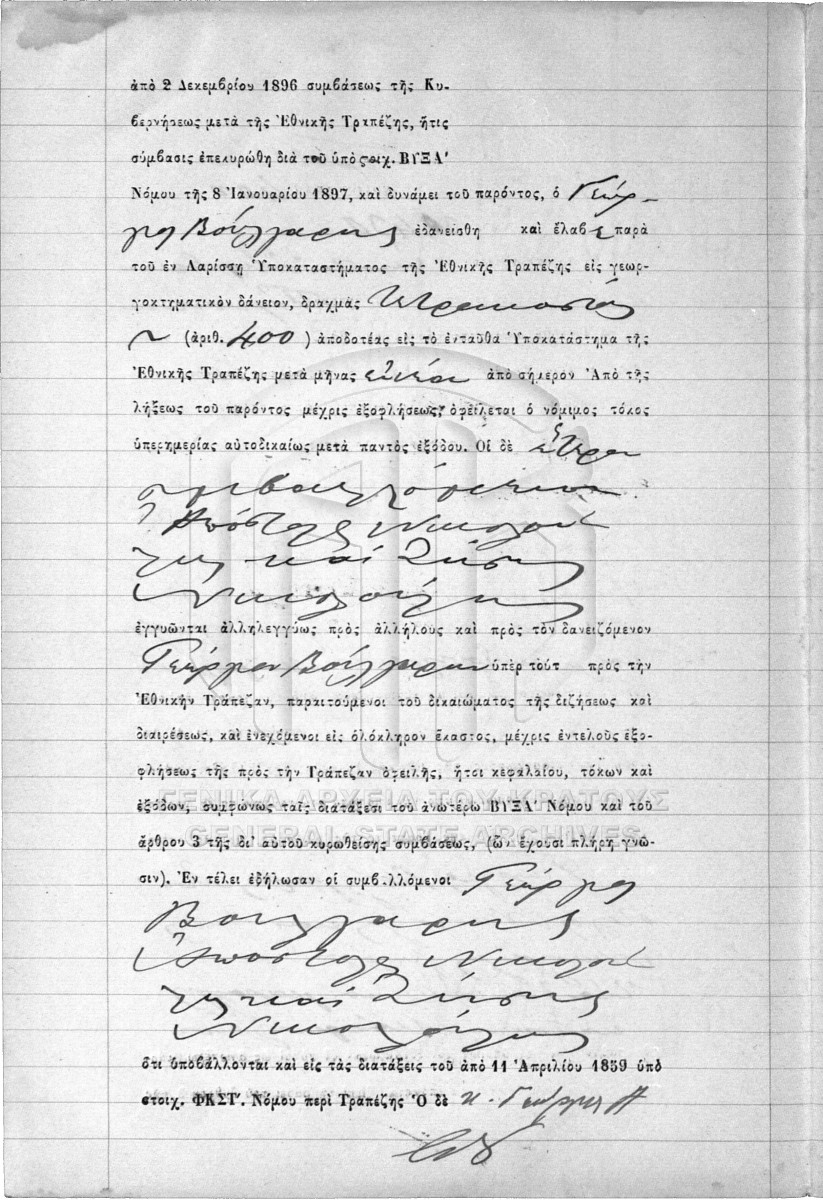 ἀπὸ 2 Δεκεμβρίου 1896 συμβάσεως τῆς Κυ-
βερνήσεως μετὰ τῆς Ἐθνικῆς Τραπέζης, ἥτις
σύμβασις ἐπεκυρώθη διὰ τοῦ ὑπὸ στοιχ. ΒΥΞΑ'
Νόμου τῆς 8 Ἰανουαρίου 1897, καὶ δυνάμει τοῦ παρόντος, ὁ Γεώρ-
γιος Βούλγαρης ἐδανείσθη καὶ ἔλαβε παρὰ
τοῦ ἐν Λαρίσσῃ Ὑποκαταστήματος τῆς Ἐθνικῆς Τραπέζης εἰς γεωρ-
γοκτηματικὸν δάνειον, δραχμὰς Τετρακοσίας
(ἀριθ. 400) ἀποδοτέας εἰς τὸ ἐνταῦθα Ὑποκατάστημα τῆς
Ἐθνικῆς Τραπέζης μετὰ μῆνας ἐννέα ἀπὸ σήμερον Ἀπὸ τῆς
λήξεως τοῦ παρόντος μέχρις ἐξοφλήσεως, ὀφείλεται ὁ νόμιμος τόκος
ὑπερημερίας αὐτοδικαίως μετὰ παντὸς ἐξόδου. Οἱ δὲ ἕτεροι
συμβαλλόμενοι
Ἀπόστολος Νικολού
λης καὶ Ζήσης
Νικολούλης
ἐγγυῶνται ἀλληλεγγύως πρὸς ἀλλήλους καὶ πρὸς τὸν δανειζόμενον
Γεώργιον Βούλγαρην ὑπὲρ τούτ πρὸς τὴν
Ἐθνικὴν Τράπεζαν, παραιτούμενοι τοῦ δικαιώματος τῆς διζήσεως καὶ
διαιρέσεως, καὶ ἐνεχόμενοι εἰς ὁλόκληρον ἕκαστος, μέχρις ἐντελοῦς ἐξο-
φλήσεως τῆς πρὸς τὴν Τράπεζαν ὀφειλῆς, ἤτοι κεφαλαίου, τόκων καὶ
ἐξόδων, συμφώνως ταῖς διατάξεσι τοῦ ἀνωτέρω ΒΥΞΑ' Νόμου καὶ τοῦ
ΓΕΝΙΚΑ ΑΡΧΕΙΑ ΤΟΥ ΚΡΑΤΟΥΣ
GENERAL STATE ARCHIVES
ἄρθρου 3 τῆς δι' αὐτοῦ κυρωθείσης συμβάσεως, (ὧν ἔχουσι πλήρη γνῶ-
σιν). Ἐν τέλει ἐδήλωσαν οἱ συμβαλλόμενοι Γεώργιος
Βούλγαρης
Ἀπόστολος Νικολού
λης καὶ Ζήσης
Νικολούλης
ὅτι ὑποβάλλονται καὶ εἰς τὰς διατάξεις τοῦ ἀπὸ 11 Ἀπριλίου 1859 ὑπὸ
στοιχ. ΦΚΣΤ'. Νόμου περὶ Τραπέζης Ὁ δὲ κ. Γεώργιος Α